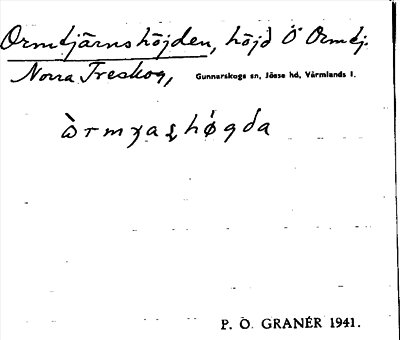 Ormtjärnshöjden, höjd Ö Ormtj.
Norra Treskog, Gunnarskogs sn, Jösse hd, Värmlands l.
P. O. GRANÉR 1941.